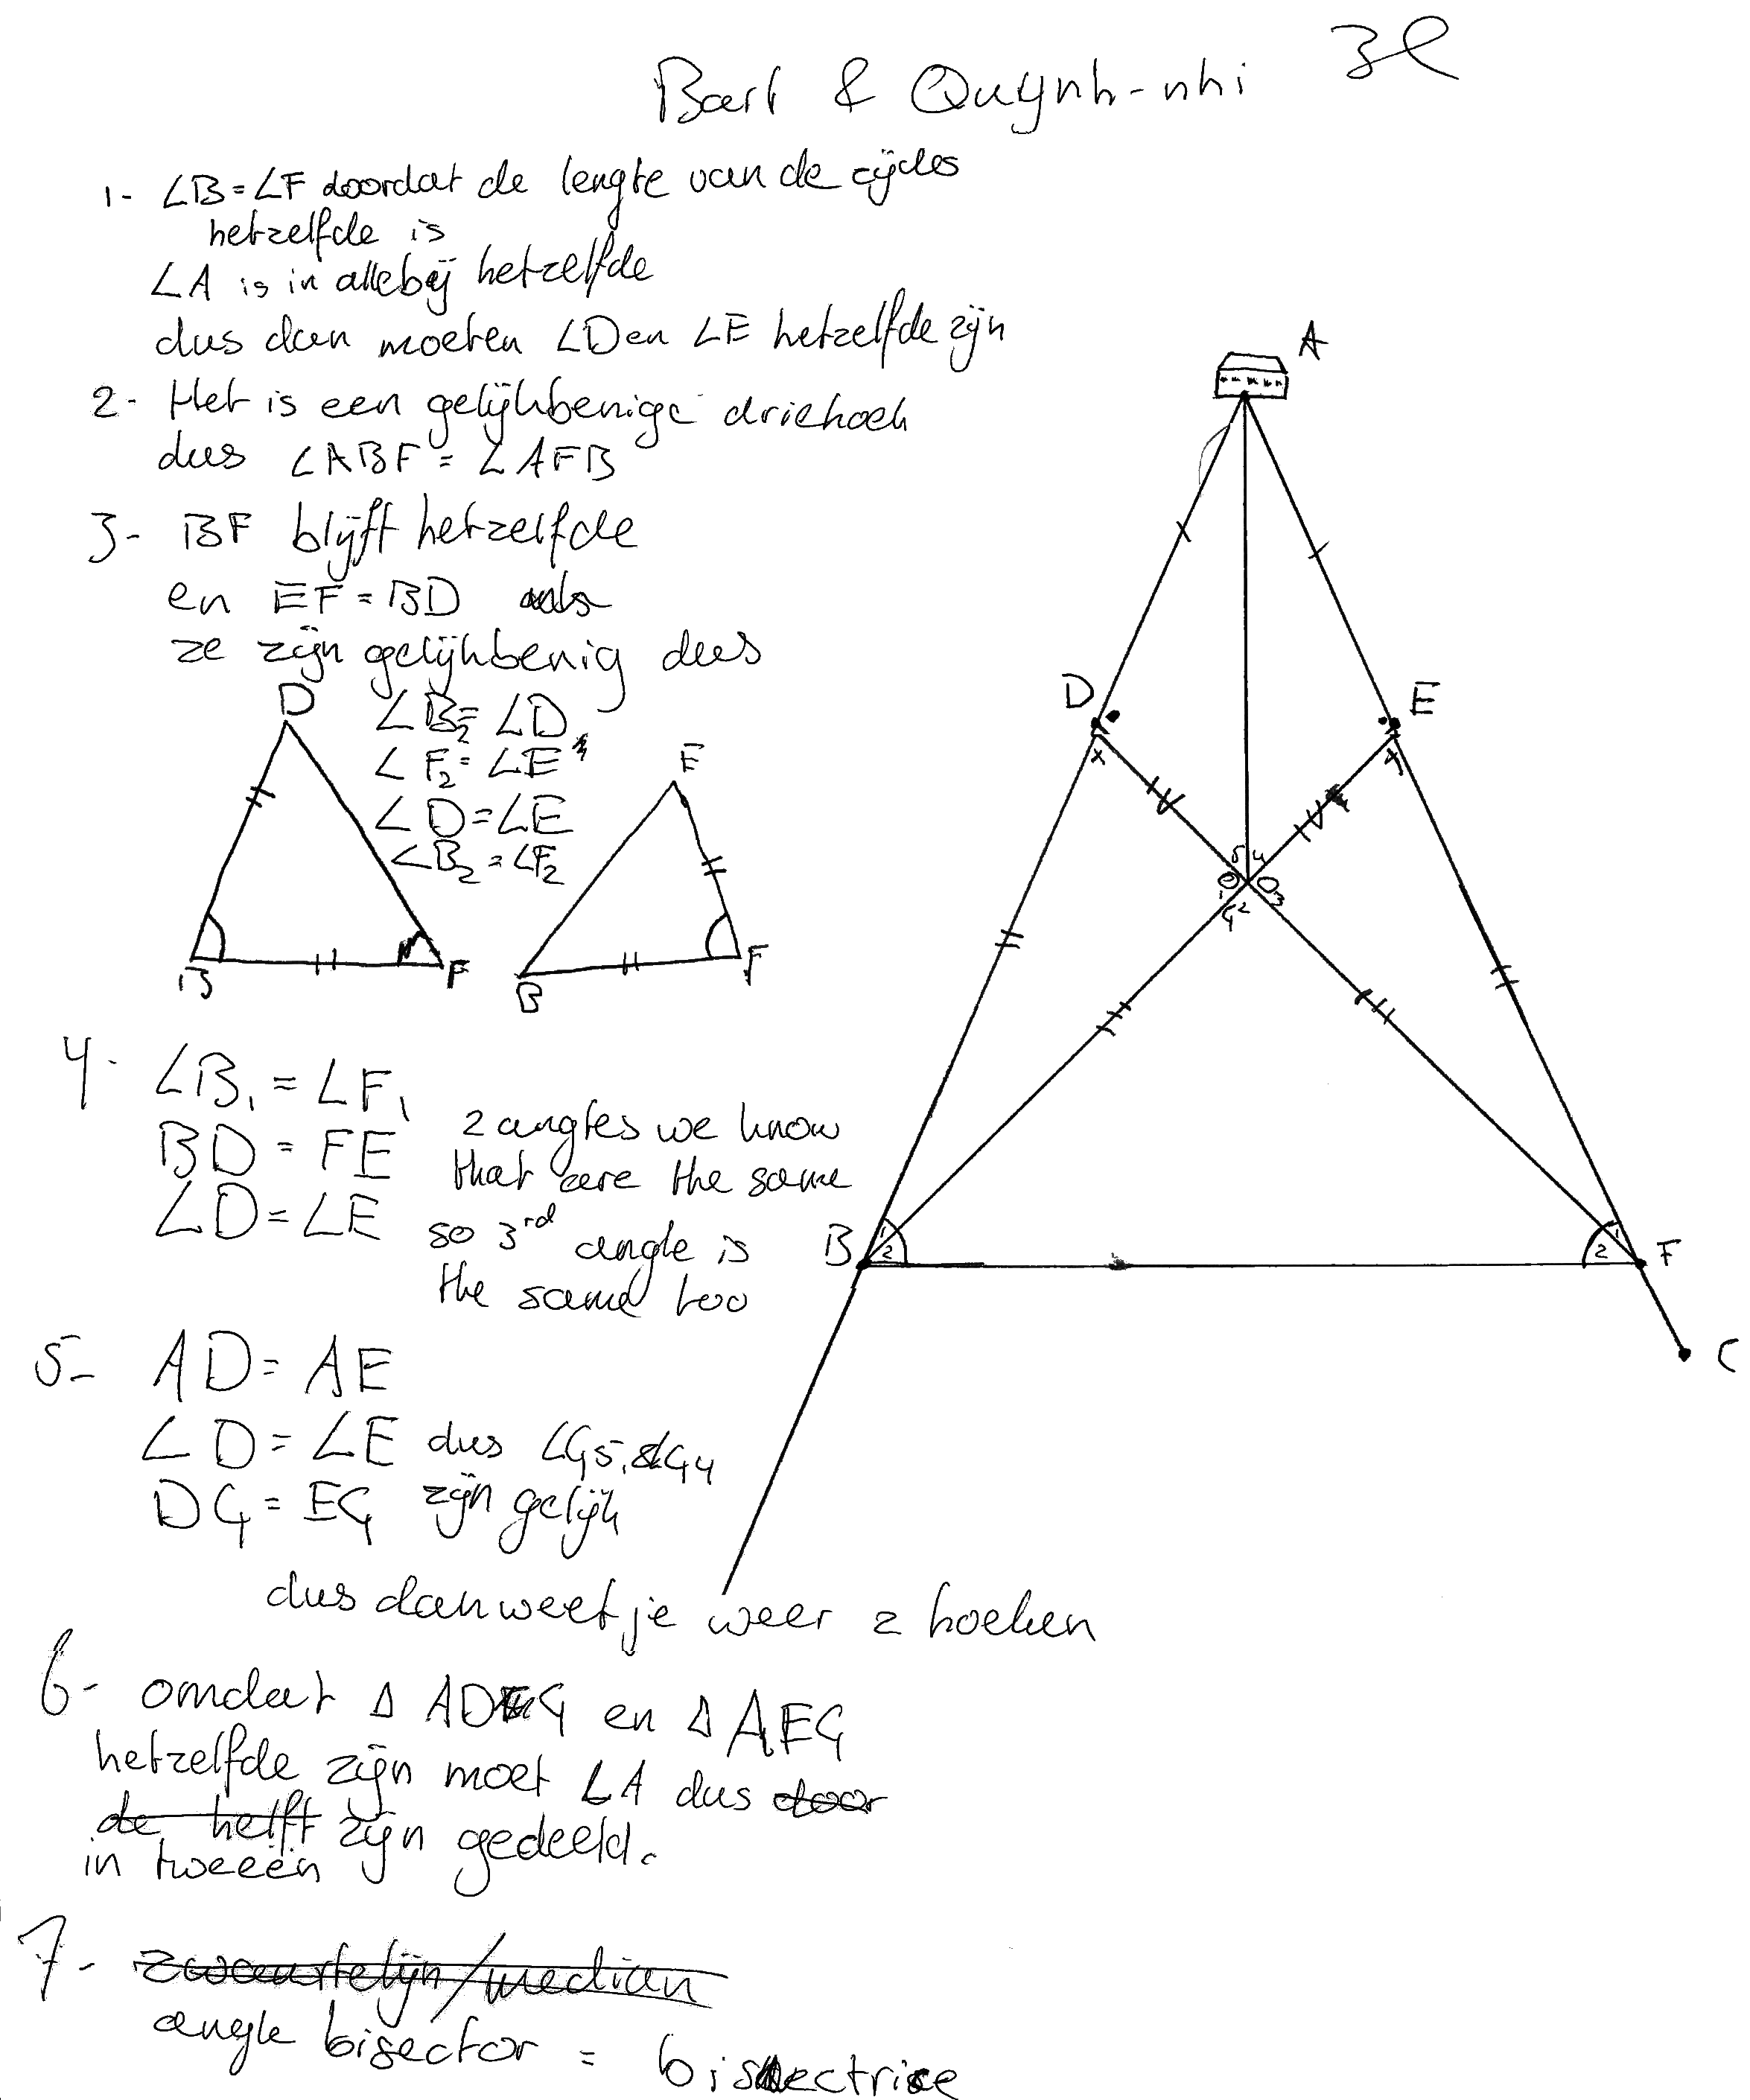 Bart & Quynh-nhi 3l
1- ∠B=∠F doordat de lengte van de zijdes
hetzelfde is
∠A is in allebij hetzelfde
dus dan moeten ∠D en ∠E hetzelfde zijn
2- Het is een gelijkbenige driehoek
dus ∠ABF = ∠AFB
3- BF blijft hetzelfde
en EF = BD
ze zijn gelijkbenig dus
∠B2 = ∠D
∠F2 = ∠E
∠D = ∠E
∠B2 = ∠F2
D
B
F
E
B
F
4- ∠B1 = ∠F1
BD = FE
∠D = ∠E
2 angles we know
that are the same
so 3rd angle is
the same too
5- AD = AE
∠D = ∠E dus ∠G5, & G4
DG = EG zijn gelijk
dus dan weet je weer 2 hoeken
6- omdat Δ ADG en Δ AEG
hetzelfde zijn moet ∠A dus door
de helft zijn gedeeld.
in tweeën
7- zwaartelijn/median
angle bisector = bissectrice
A
D
E
x
x
5 4
1 3
G 2
B
1
2
1
2
F
C